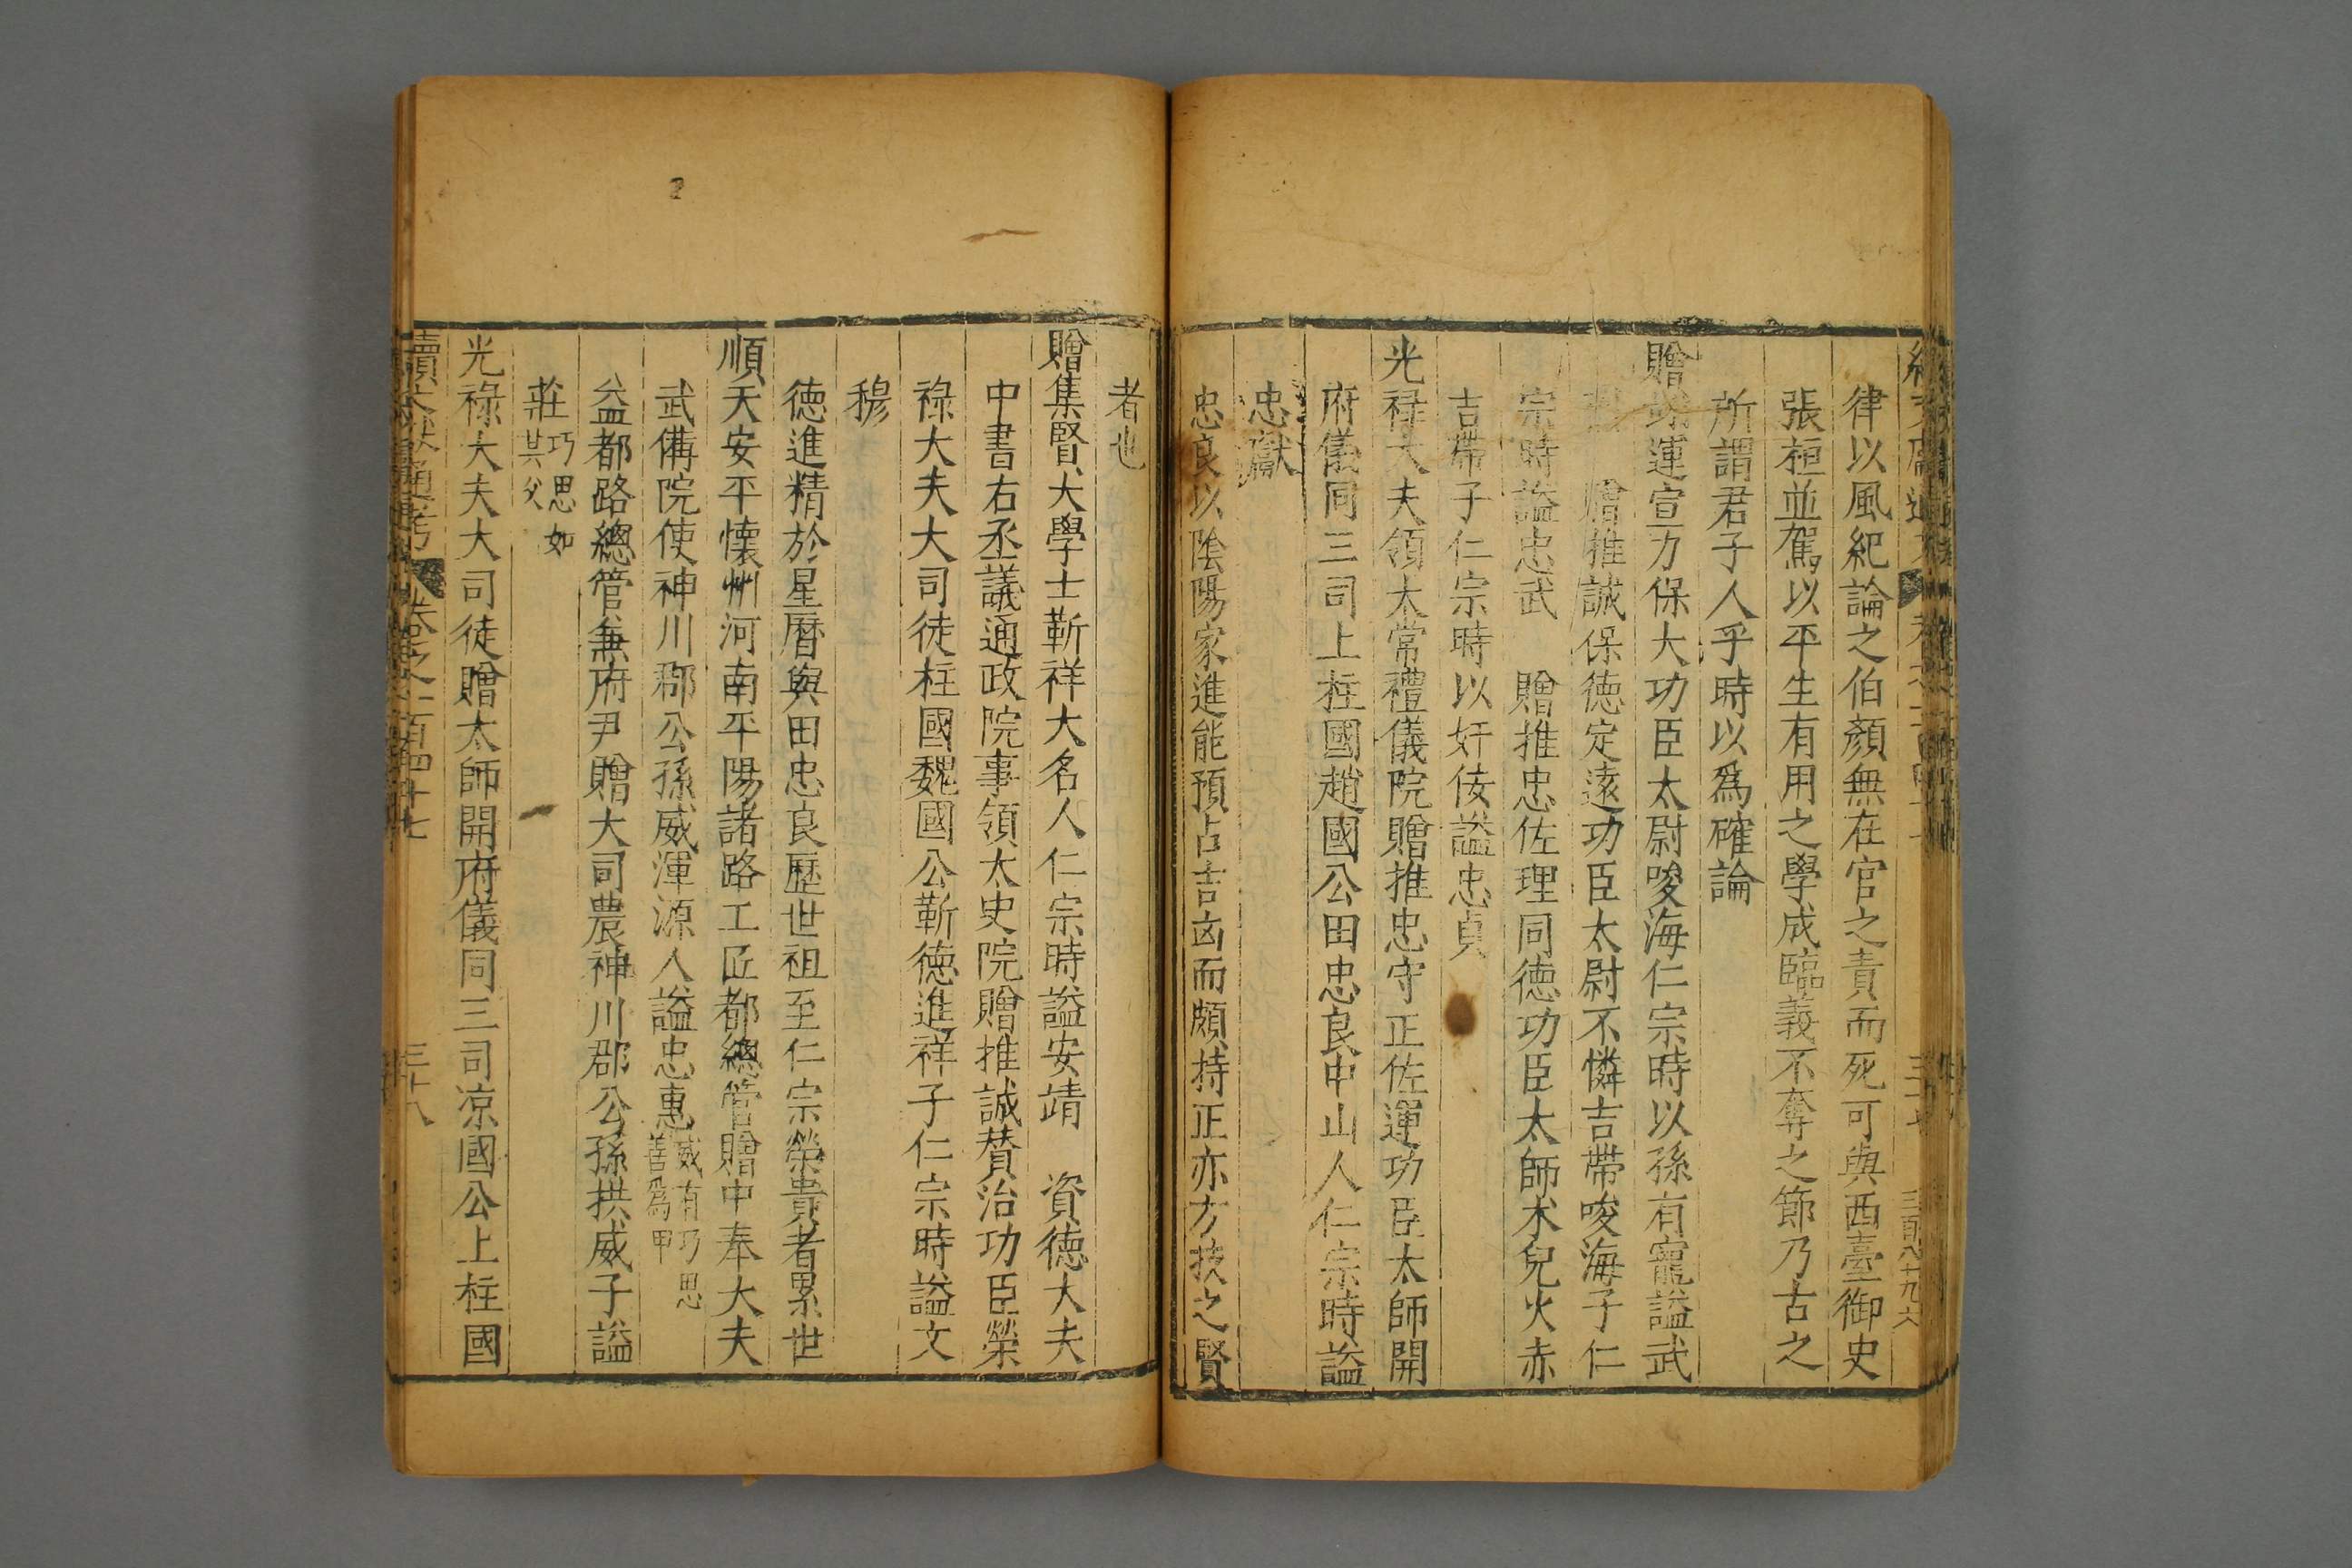 律以風紀論之伯顏無在官之責而死可與西臺御史
張桓並駕以平生有用之學成臨義不奪之節乃古之
所謂君子人乎時以爲確論
贈翊運宣力保大功臣太尉唆海仁宗時以孫有寵謚武
贈推誠保德定遠功臣太尉不憐吉帶唆海子仁
宗時謚忠武　贈推忠佐理同德功臣太師木兒火赤
吉帶子仁宗時以奸佞謚忠貞
光祿大夫領太常禮儀院贈推忠守正佐運功臣太師開
府儀同三司上柱國趙國公田忠良中山人仁宗時謚
忠獻
忠良以陰陽家進能預占吉凶而頗持正亦方技之賢
者也
贈集賢大學士靳祥大名人仁宗時謚安靖　資德大夫
中書右丞議通政院事領太史院贈推誠贊治功臣榮
祿大夫大司徒柱國魏國公靳德進祥子仁宗時謚文
穆
德進精於星曆與田忠良歷世祖至仁宗榮貴者累世
順天安平懷州河南平陽諸路工匠都總管贈中奉大夫
武備院使神川郡公孫威渾源人謚忠惠威有巧思善爲甲
益都路總管兼府尹贈大司農神川郡公孫拱威子謚
莊巧思如其父
光祿大夫大司徒贈太師開府儀同三司凉國公上柱國
續文獻通考　卷之一百四十七　三十八